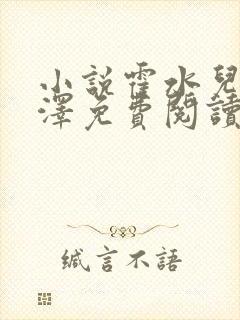 小說霍水兒
澤免費閱讀
緘言不語